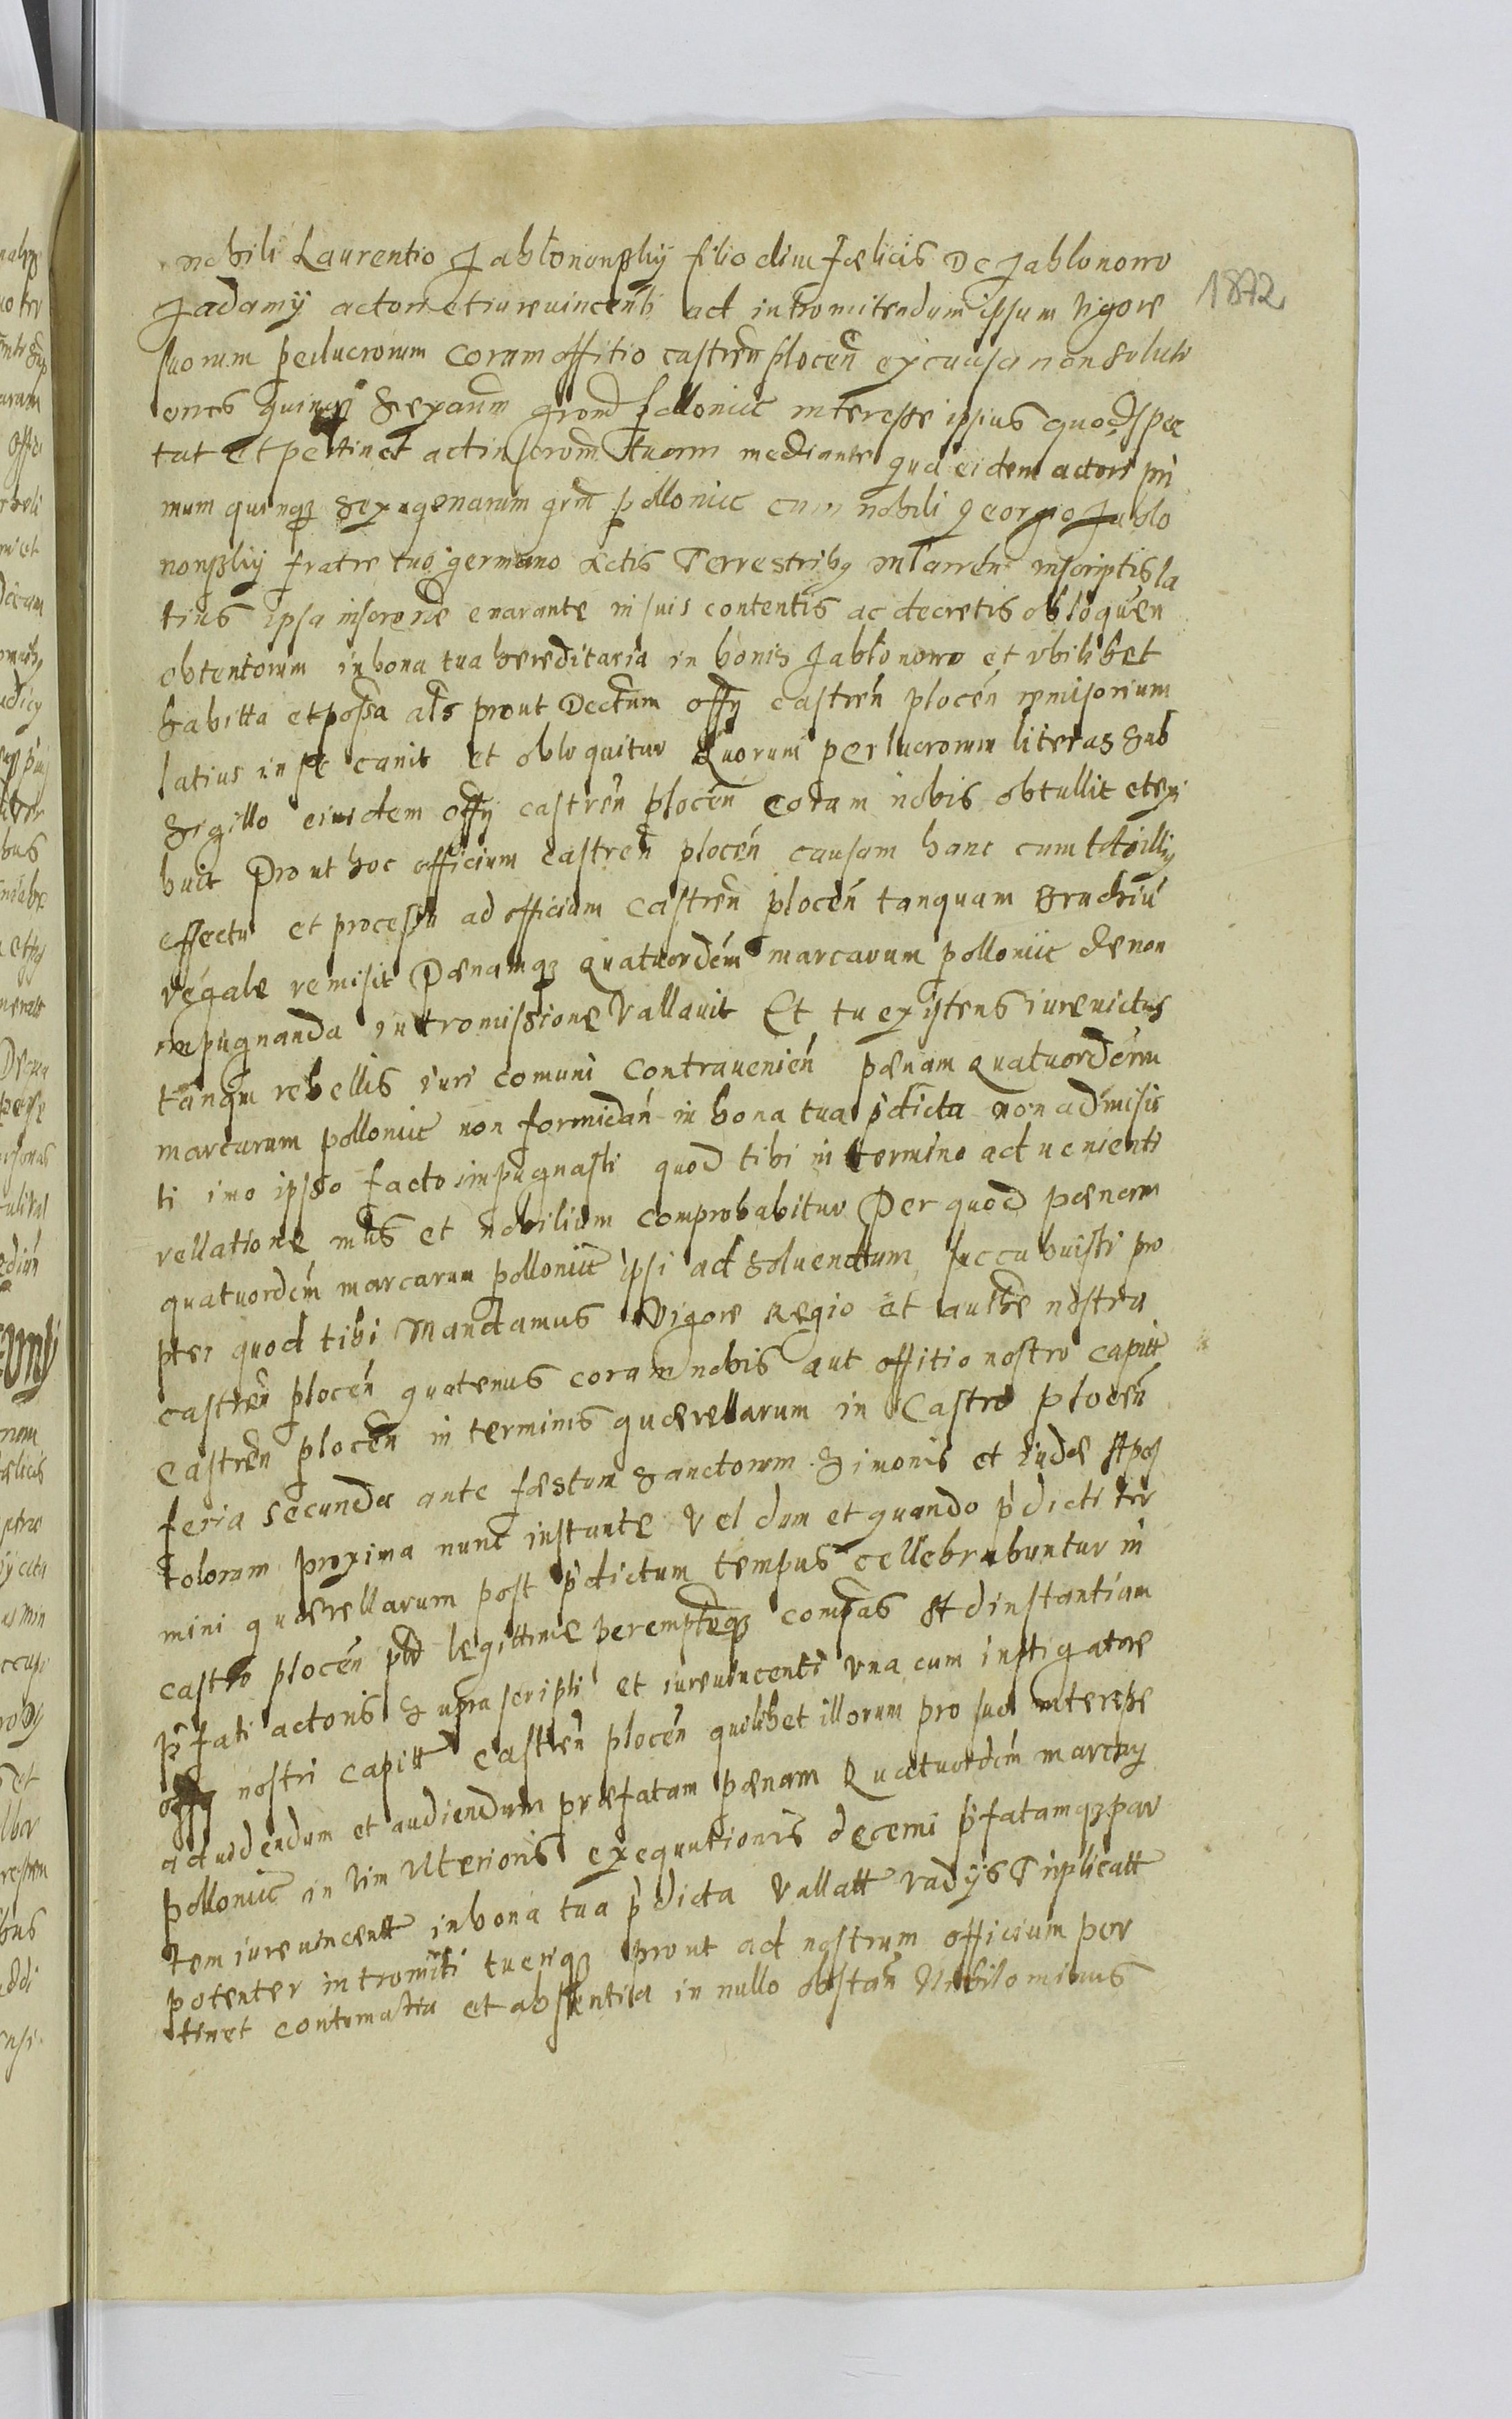 nobili Laurentio Jablononßkij filio olim Fælicis De Jablonowo
1872
Jadamÿ actori et iurevincenti ad intromitendum ipsum vigore
suorum perlucrorum coram offitio castren plocen ex causa non soluti
onis quinqz Sexaum grond Pollonict interesse ipsius quod spec
tat et pertinet ad inscrom tuam mediante qua eidem actori su
mum quinqz sexagenarum grm pollonict cum nobili Georgio Jablo
nonßkij fratre tuo germano Actis Terrestribz inscriptis la
tius ipsa inscrone enarante in suis contentis ac decretis obloquen
obtentorum in bona tua hereditaria in bonis Jablonowo et vbilibet
habitta et possa als prout Dectum offy castren plocen remisorium
latius in se canit et obloquitur Quorum perlucrorum literas sub
Sigillo eiusdem offy castren plocen coram nobis obtullit et exi
buit Prout hoc officium castren plocen causam hanc cum toto illiq
effectu et processu ad officium castren plocen tanquam Brachiu
regale remisit Pænamqz quatuordem marcarum pollonict de non
impugnanda intromissione vallavit Et tu existens iurevictus
tanqm rebellis iuri comuni contravenien pænam quatuordem
marcarum pollonict non formidan in bona tua pdicta non admisis
ti imo ipso facto impugnasti quod tibi in termino advenienti
rellatione mlis et nobilium comprobabitur Per quod pænam
quatuordem marcarum pollonict ipsi ad solvendum succubuisti pro
pter quod tibi Mandamus vigore Regio et authe nostra
castren plocen quatenus coram nobis aut offitio nostro capitt
castren plocen in terminis quærellarum in Castro plocen
feria secunda ante fæstum Sanctorum Simonis et Judæ Apos
tolorum proxima nunc instante vel dum et quando pdicti ter
mini quærellarum post pdictum tempus cellebrabuntur in
castro plocen ptd legittime peremptæqz compas Ad instantiam
pfati actoris Suprascripti et iurevincenti vna cum instigatore
offy nostri capitt castren plocen quilibet illorum pro suo interesse
ad videndum et audiendum præfatam pænam Quatuordem marcarz
pollonict in vim vlterioris exequutionis decerni pfatamqz par
tem iurevincentt in bona tua pdicta vallatt vadijs Triplicatt
potenter intromitti tueriqz prout ad nostrum officium per
tinet contumatia et absentia in nullo obstan Nihilominus